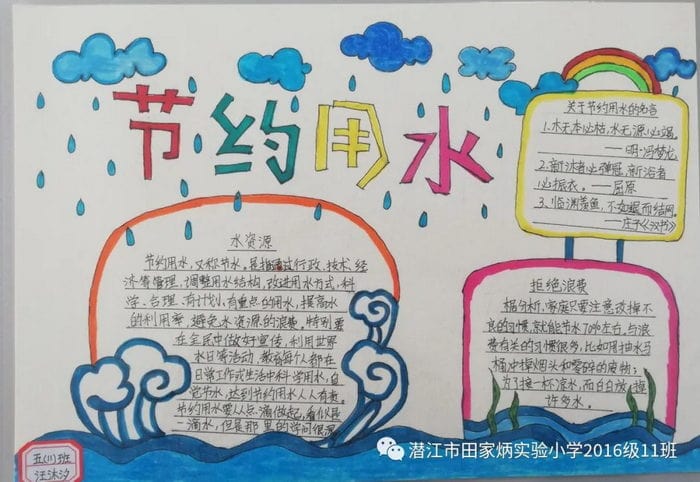 节约用水
水资源
节约用水,又称节水。是指通过行政、技术、经
济等管理,调整用水结构,改进用水方式,科
学、合理、有计划、有重点的用水,提高水
的利用率,避免水资源的浪费。特别要
在全民中做好宣传,利用世界
水日等活动,教育每个人都在
日常工作或生活中科学用水,自
觉节水,达到节约用水人人有责。
节约用水要从点滴做起,看似是一
滴水,但是那里的学问很深
关于节约用水的名言
1、木无本必枯,水无源必竭。
——明·冯梦龙
2、新沐者必弹冠,新浴者
必振衣。——屈原
3、临渊羡鱼,不如退而结网。
——庄子《汉书》
拒绝浪费
据分析,家庭只要注意改掉不
良的习惯,就能节水70%左右。与浪
费有关的习惯很多,比如用抽水马
桶冲掉烟头和零碎的废物;
为了接一杯凉水,而白白放掉
许多水。
五(11)班
汪沐汐
潜江市田家炳实验小学2016级11班